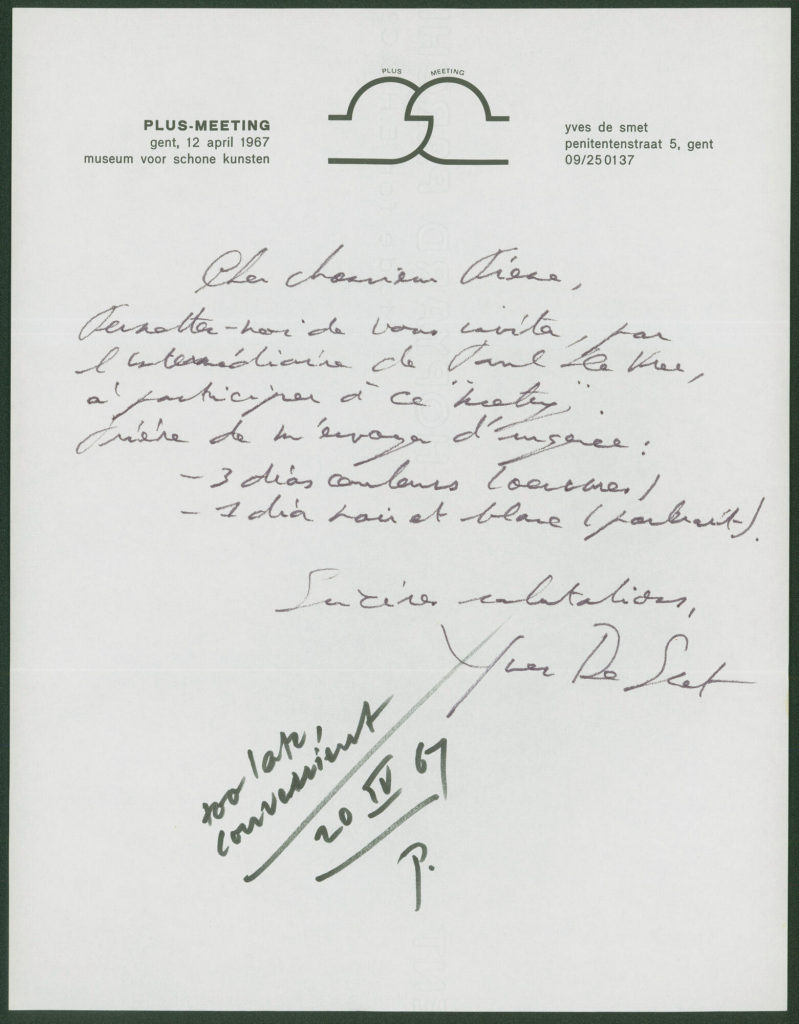 PLUS MEETING
PLUS-MEETING
gent, 12 april 1967
museum voor schone kunsten
yves de smet
penitentenstraat 5, gent
09/250137
Cher Monsieur
Permettez-moi de vous inviter, par
l'intermédiaire de Paul De Vree,
à participer à ce "meeting".
Prière de m'envoyer d'urgence:
- 3 dias couleurs (oeuvres)
- 1 dia noir et blanc (portrait).
Sincères salutations,
Yves De Smet
too late,
convenient
20 IV 67
P.